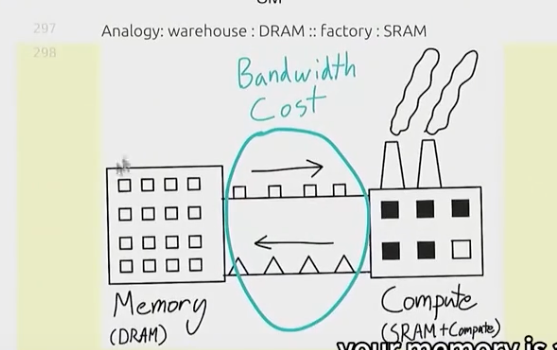 297
Analogy: warehouse : DRAM :: factory : SRAM
298
Bandwidth
Cost
Memory
(DRAM)
Compute
(SRAM + Compute)
your memory is